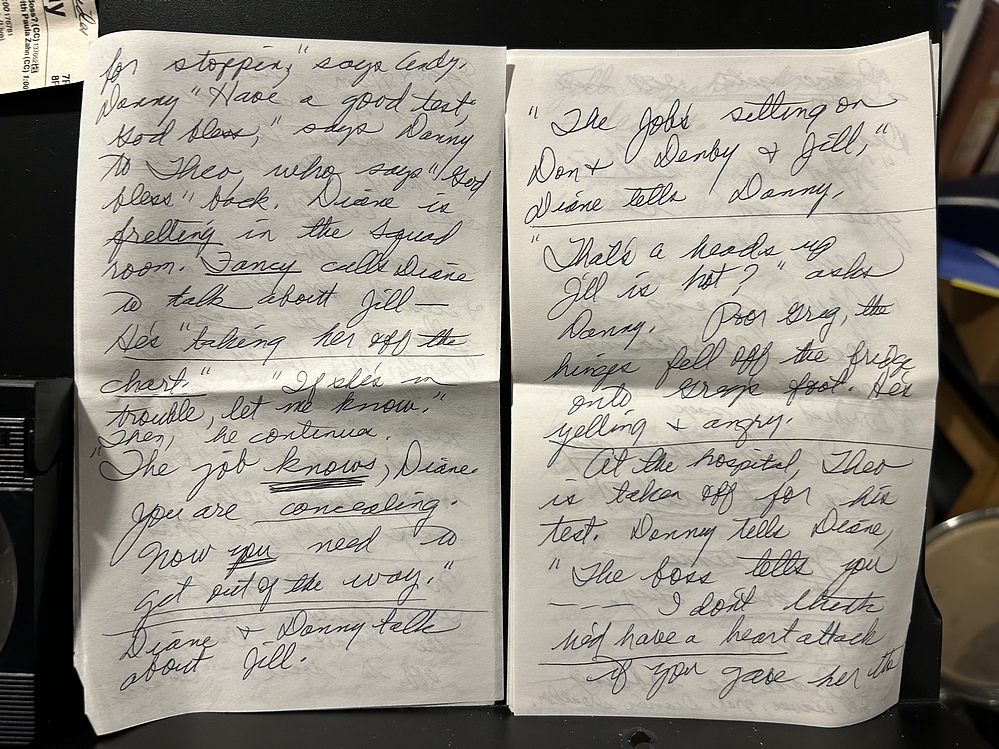 for stoppin," says Andy.
Danny "Have a good test,
God bless," says Danny
to Theo who says "God
bless" back. Diane is
fretting in the squad
room. Fancy calls Diane
to talk about Jill —
He's "taking her off the
chart." "If she's in
trouble, let me know."
Then, he continues.
"The job knows, Diane.
You are concealing.
Now you need to
get out of the way."
Diane & Danny talk
about Jill.
"The job's sitting on
Don & Denby & Jill,"
Diane tells Danny.
"That's a heads up
Jill is hot?" asks
Danny. Poor Greg, the
hinges fell off the fridge
onto Gregs foot. He's
yelling & angry.
At the hospital, Theo
is taken off for his
test. Danny tells Diane,
"The boss tells you
———— I don't think
he'd have a heart attack
if you gave her the
with Paula Zahn (CC)